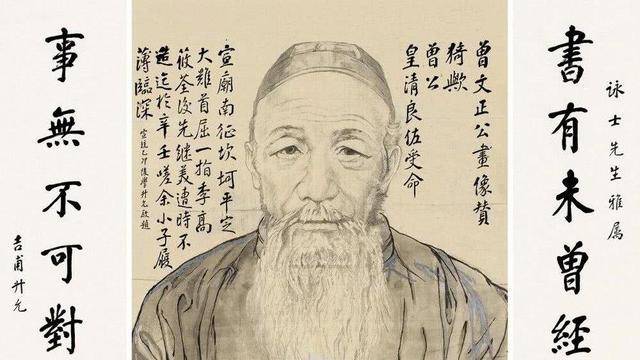 詠士先生雅屬
書有未曾經
曾文正公畫像贊
猗歟
曾公
皇清良佐受命
宣廟南征坎坷平定
大難首屈一指李高
筱荃後先繼美遭時不
造迄於辛壬嗟余小子履
薄臨深
宣統乙卯後學升允敬題
事無不可對
吉甫升允